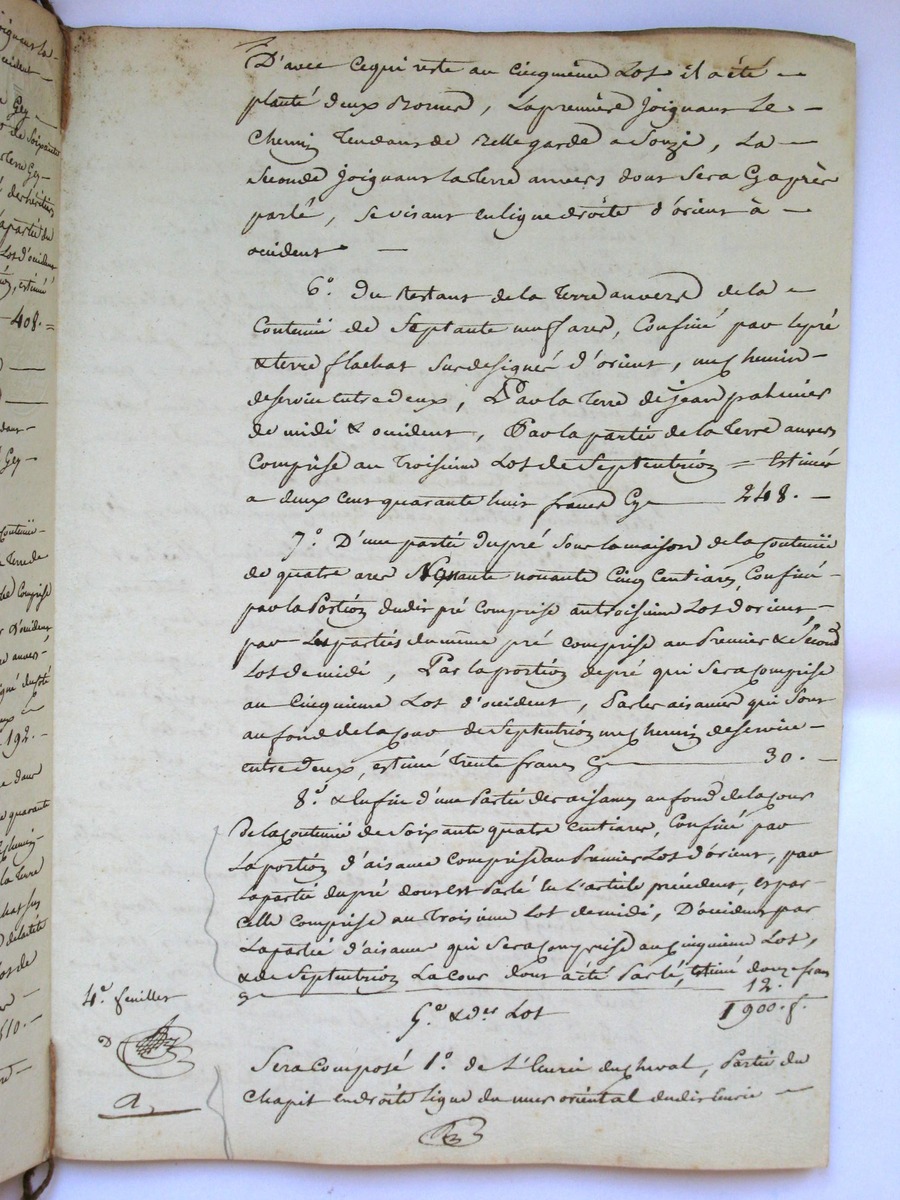 oignant la
cident —
Gey —
de soixante
terre Gey —
des héritiers
la partie du
Lot d'occident
estimé
408. =
dans —
Gey —
Contenü
terre de
Comprise
D'occident
anvers —
192. —
dans
quarante
chemin
la terre
Lot de
510. —
D'avec cequi reste au Cinquième Lot il a été —
planté deux Bornes, la première Joignant Le —
Chemin Tendant de Bellegarde a Souzi, La —
Seconde Joignant la terre anvers dont Sera Cy après
parlé, Se visant en ligne droite d'orient à —
occident —
6.° Du Restant de la Terre anvers de la —
Contenü de Septante neuf ares, Confiné par le pré
& terre flachat Sus designés d'orient, un chemin —
deservice entre deux, Par la Terre de jean palmier
de midi & occident, Par la partie de la Terre anvers
Comprise au Troisieme Lot de Septentrion = Estimée
a deux cent quarante huit francs Cy — 248. —
7.° D'une partie du pré Sous la maison de la Contenüe
de quatre ares Nonante nonante Cinq Centiares, Confiné —
par la Portion dudit pré Comprise au troisieme Lot d'orient —
par Les parties du même pré comprise au Premier & Second
Lot de midi, Par la portion de pré qui Sera Comprise
au Cinquieme Lot d'occident, Par les aisances qui Sont
au fond de la Cour de Septentrion un chemin de Service —
entre deux, estimé Trente francs Cy — 30. —
8.° & Enfin d'une Partie des aisances au fond de la Cour
De la Contenüe de Soixante quatre Centiares, Confiné par
La portion d'aisance Comprise au Premier Lot d'orient, par
La partie du pré dont est Parlé En L'article précédent, et par
Celle Comprise au Troisieme Lot de midi, D'occident par
La partie d'aisance qui Sera Comprise au Cinquieme Lot,
& de Septentrion La Cour dont a été Parlé, Estimé douze francs
Cy — 12.
1900. f.
5.e & d.er Lot
4.e feuillet
Sera Composé 1.° de L'Ecurie du cheval, Partie du
Chapit en droite ligne du mur oriental dudit Ecurie —